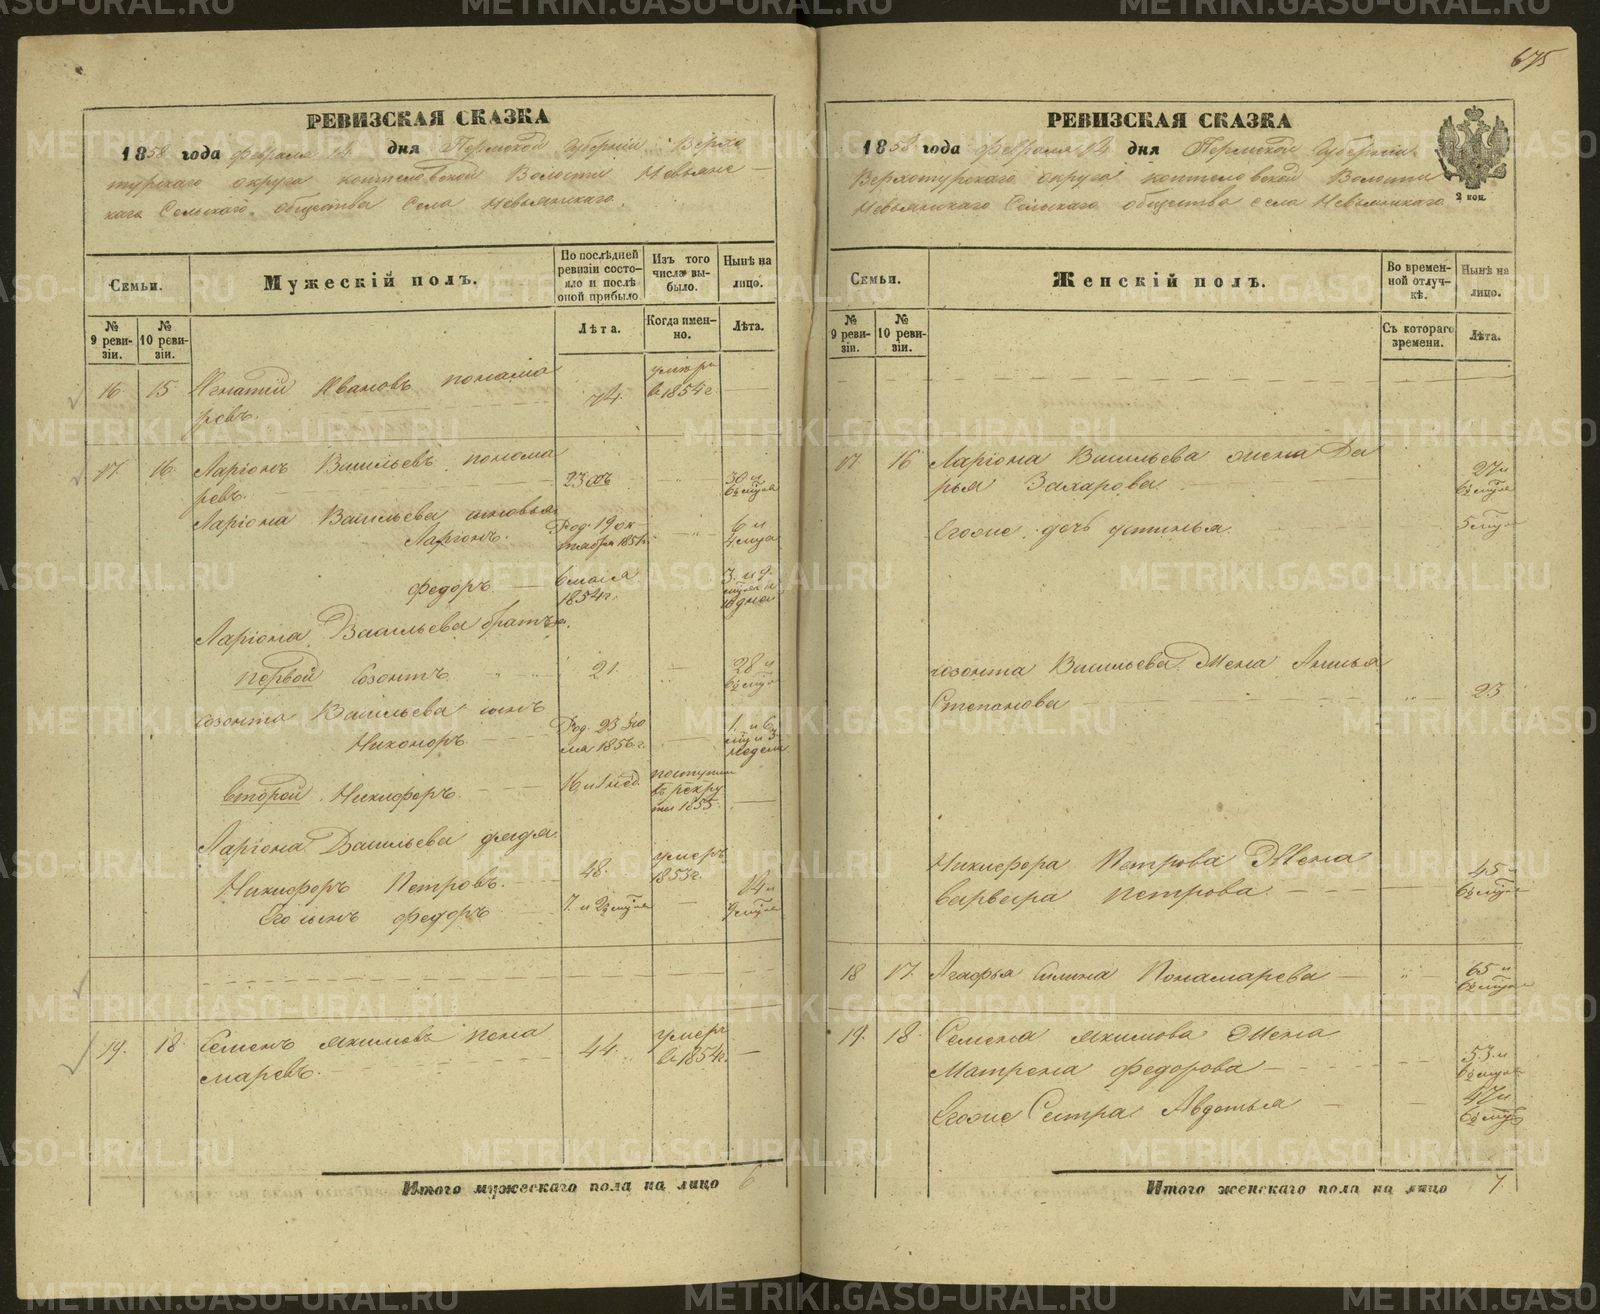 675
РЕВИЗСКАЯ СКАЗКА
1858 года февраля 12 дня Пермской Губернии Верхо
турскаго округа коптеловской Волости Невьянс
каго Сельскаго общества Села Невьянскаго.
Семьи.
Мужескій полъ.
По послѣдней ревизіи состояло и послѣ оной прибыло.
Изъ того числа выбыло.
Нынѣ на лицо.
№ 9 ревизіи.
№ 10 ревизіи.
Лѣта.
Когда именно.
Лѣта.
16. 15 Игнатій Ивановъ понама 74. умеръ
ревъ. в 1854 г.
17 16. Ларіонъ Васильевъ понома
ревъ. 23 30 и
Ларіона Васильева сыновья
Ларіонъ. Род. 19 ок 6 и
тября 1851 г. 4 м-ца
Федоръ 6 мая 3. и 9
1854 г.
Ларіона Васильева братья.
первой Созонтъ 21. 28 и
Созонта Васильева сынъ
Никоноръ Род. 23 1. и 6
1856 г. недели
второй Никифоръ. 16 поступил
въ рекру
ты 1855.
Ларіона Васильева дядя
Никифоръ Петровъ. 48. умеръ
1853 г.
Его сынъ федоръ 7. и 14 и
19. 18 Семенъ якимовъ пона 44. умеръ
маревъ. в 1854 г.
Итого мужескаго пола на лицо 6
РЕВИЗСКАЯ СКАЗКА
1858 года февраля 12 дня Пермской Губернии
Верхотурскаго округа коптеловской Волости
Невьянскаго Сельскаго общества села Невьянскаго
2 коп.
Семьи.
Женскій полъ.
Во временной отлучкѣ.
Нынѣ на лицо.
№ 9 ревизіи.
№ 10 ревизіи.
Съ котораго времени.
Лѣта.
17. 16 Ларіона Васильева жена Да
рья Захарова. 27 и
Егоже дочь устинья 5
Созонта Васильева Жена
Степанова 23
Никифора Петрова Жена
варвара петрова. 45 и
18 17. Пономарева 65 и
19. 18. Семена якимова Жена
Матрена федорова 53. и
Егоже Сестра Авдотья 47 и
Итого женскаго пола на лицо 7.